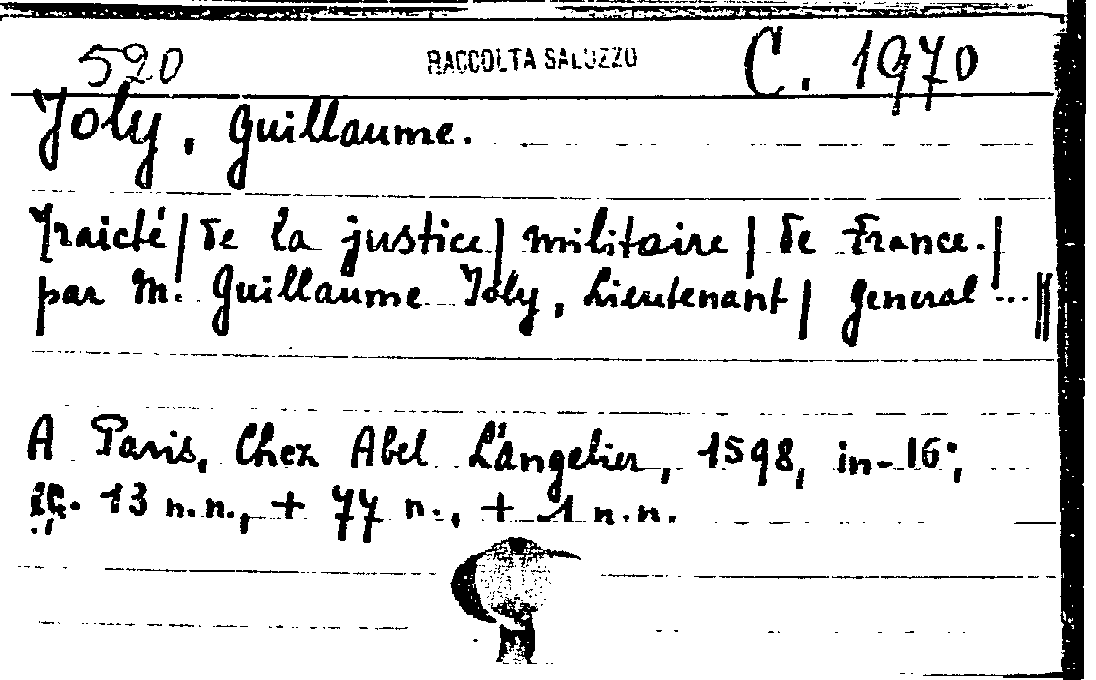 520 RACCOLTA SALUZZO C. 1970
Joly, Guillaume.
Traicté | de la justice | militaire | de France. |
par M. Guillaume Joly, Lieutenant | General ... ||
A Paris, Chez Abel L'Angelier, 1598, in-16°,
13 n.n., + 77 n., + 1 n.n.